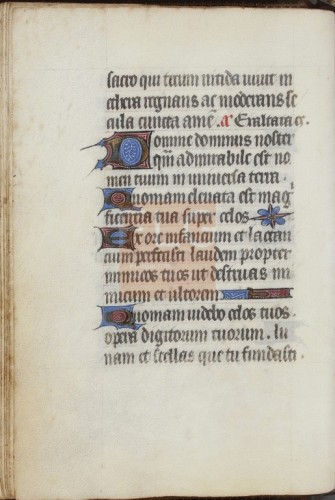 sacro qui tecum nitida vivit in
ethera regnans ac moderans se
cula cuncta amē. a Exaltata es.
Domine dominus noster
qm̄ admirabile est no
men tuum in universa terra.
Quoniam elevata est mag
ficencia tua super celos.
Ex ore infancium et lacten
cium perfecisti laudem propter
inimicos tuos ut destruas ini
micum et ultorem
Quoniam videbo celos tuos.
opera digitorum tuorum. lu
nam et stellas que tu fundasti.